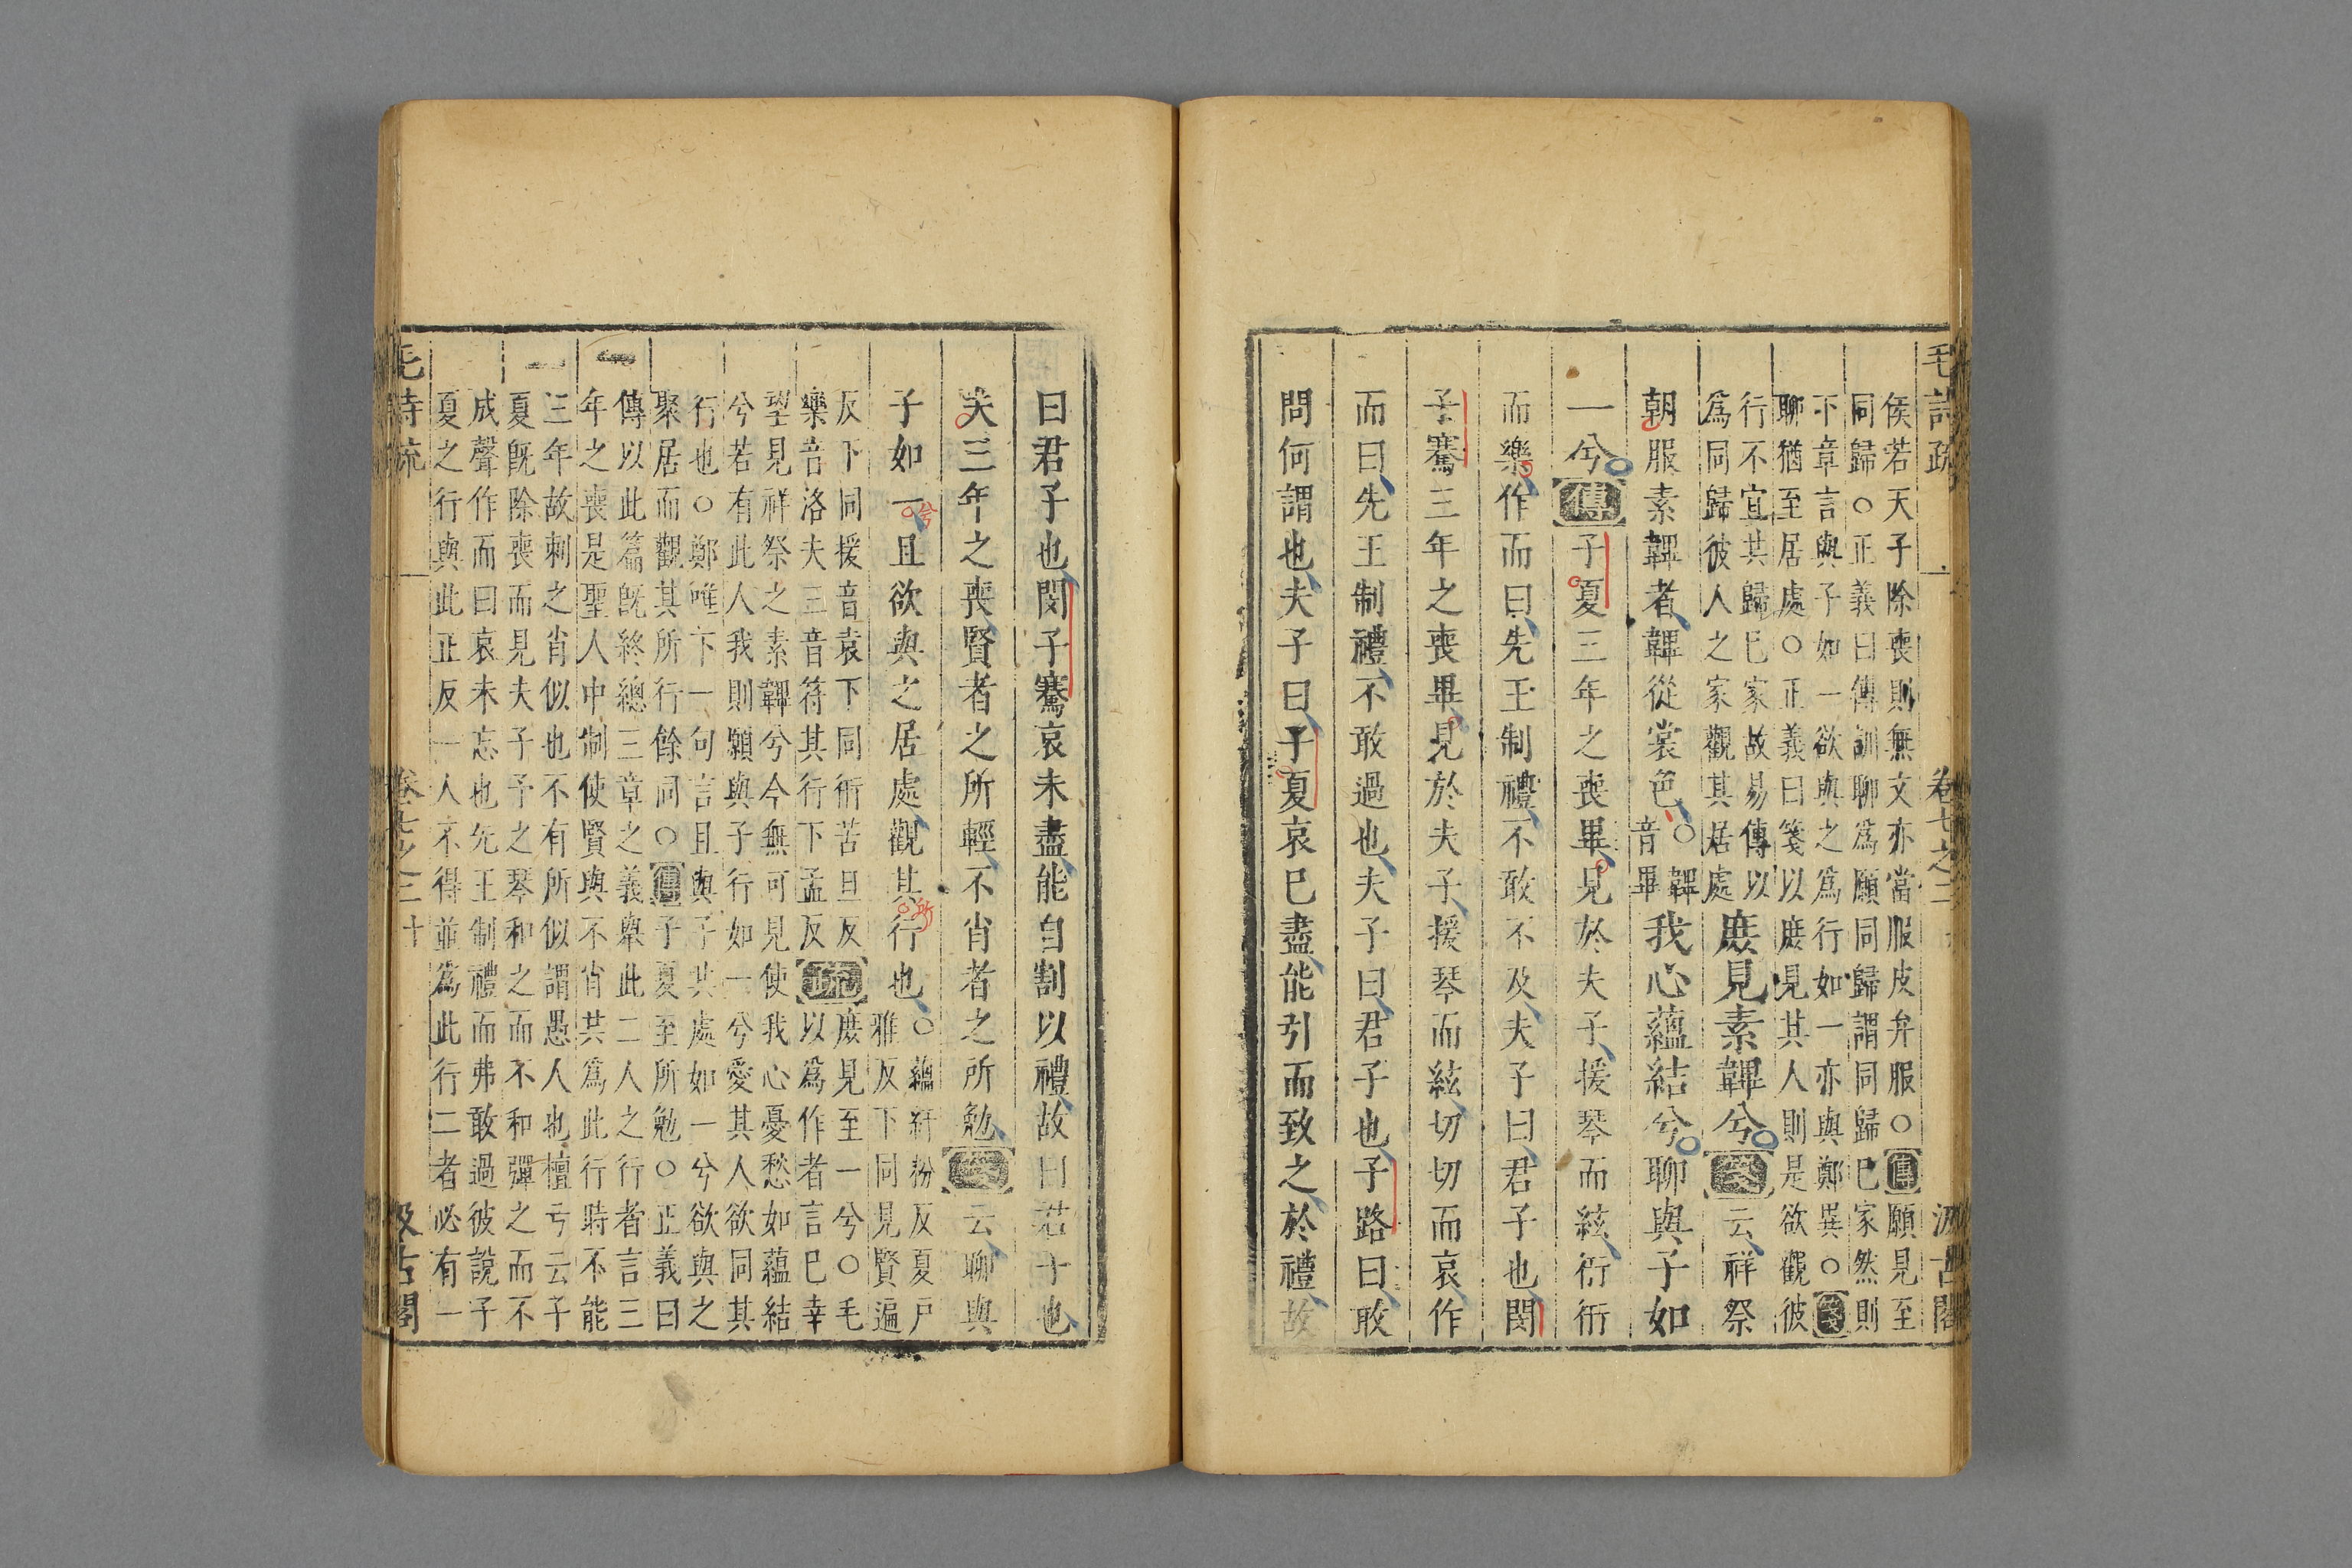 毛詩疏 卷七之二 汲古閣
侯若天子除喪則無文亦當服皮弁服○傳願見至
同歸○正義曰傳訓聊爲願同歸謂同歸已家然則
下章言與子如一欲與之爲行如一亦與鄭異○箋
聊猶至居處○正義曰箋以庶見其人則是欲觀彼
行不宜共歸已家故易傳以
爲同歸彼人之家觀其居處
庶見素韠兮箋云祥祭
朝服素韠者韠從裳色
○韠
音畢
我心蘊結兮聊與子如
一兮傳子夏三年之喪畢見於夫子援琴而絃衎衎
而樂作而曰先王制禮不敢不及夫子曰君子也閔
子騫三年之喪畢見於夫子援琴而絃切切而哀作
而曰先王制禮不敢過也夫子曰君子也子路曰敢
問何謂也夫子曰子夏哀已盡能引而致之於禮故
曰君子也閔子騫哀未盡能自割以禮故曰君子也
夫三年之喪賢者之所輕不肖者之所勉箋云聊與
子如一且欲與之居處觀其行也
兮
所
○蘊紆粉反夏戶
雅反下同見賢遍
反下同援音袁下同衎苦旦反
樂音洛夫三音符其行下孟反
疏
庶見至一兮○毛
以爲作者言已幸
望見祥祭之素韠兮今無可見使我心憂愁如蘊結
兮若有此人我則願與子行如一兮愛其人欲同其
行也○鄭唯下一句言且與子共處如一兮欲與之
聚居而觀其所行餘同○傳子夏至所勉○正義曰
傳以此篇既終總三章之義舉此二人之行者言三
年之喪是聖人中制使賢與不肖共爲此行時不能
三年故刺之肖似也不有所似謂愚人也檀弓云子
夏既除喪而見夫子予之琴和之而不和彈之而不
成聲作而曰哀未忘也先王制禮而弗敢過彼說子
夏之行與此正反一人不得並爲此行二者必有一
毛詩疏 卷七之二 十 汲古閣